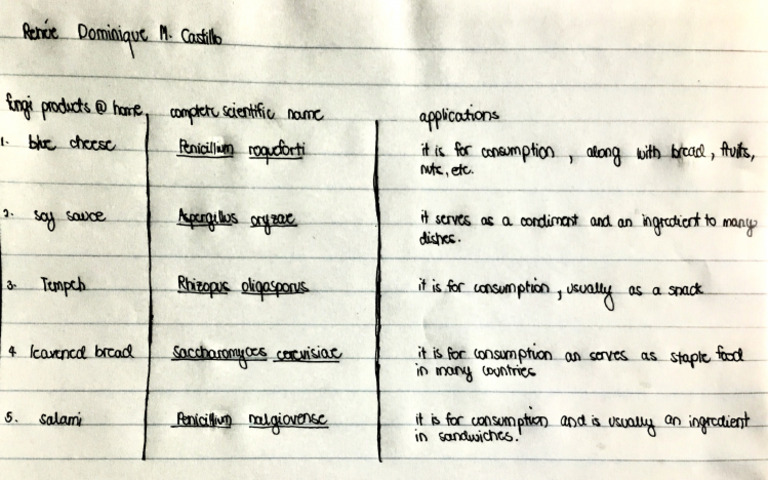 Renée Dominique M. Castillo
fungi products @ home complete scientific name applications
1. blue cheese Penicillium roqueforti it is for consumption, along with bread, fruits,
nuts, etc.
2. soy sauce Aspergillus oryzae it serves as a condiment and an ingredient to many
dishes.
3. Tempeh Rhizopus oligosporus it is for consumption, usually as a snack
4 leavened bread saccharomyces cerevisiae it is for consumption an serves as staple food
in many countries
5. salami Penicillium nalgiovense it is for consumption and is usually an ingredient
in sandwiches.